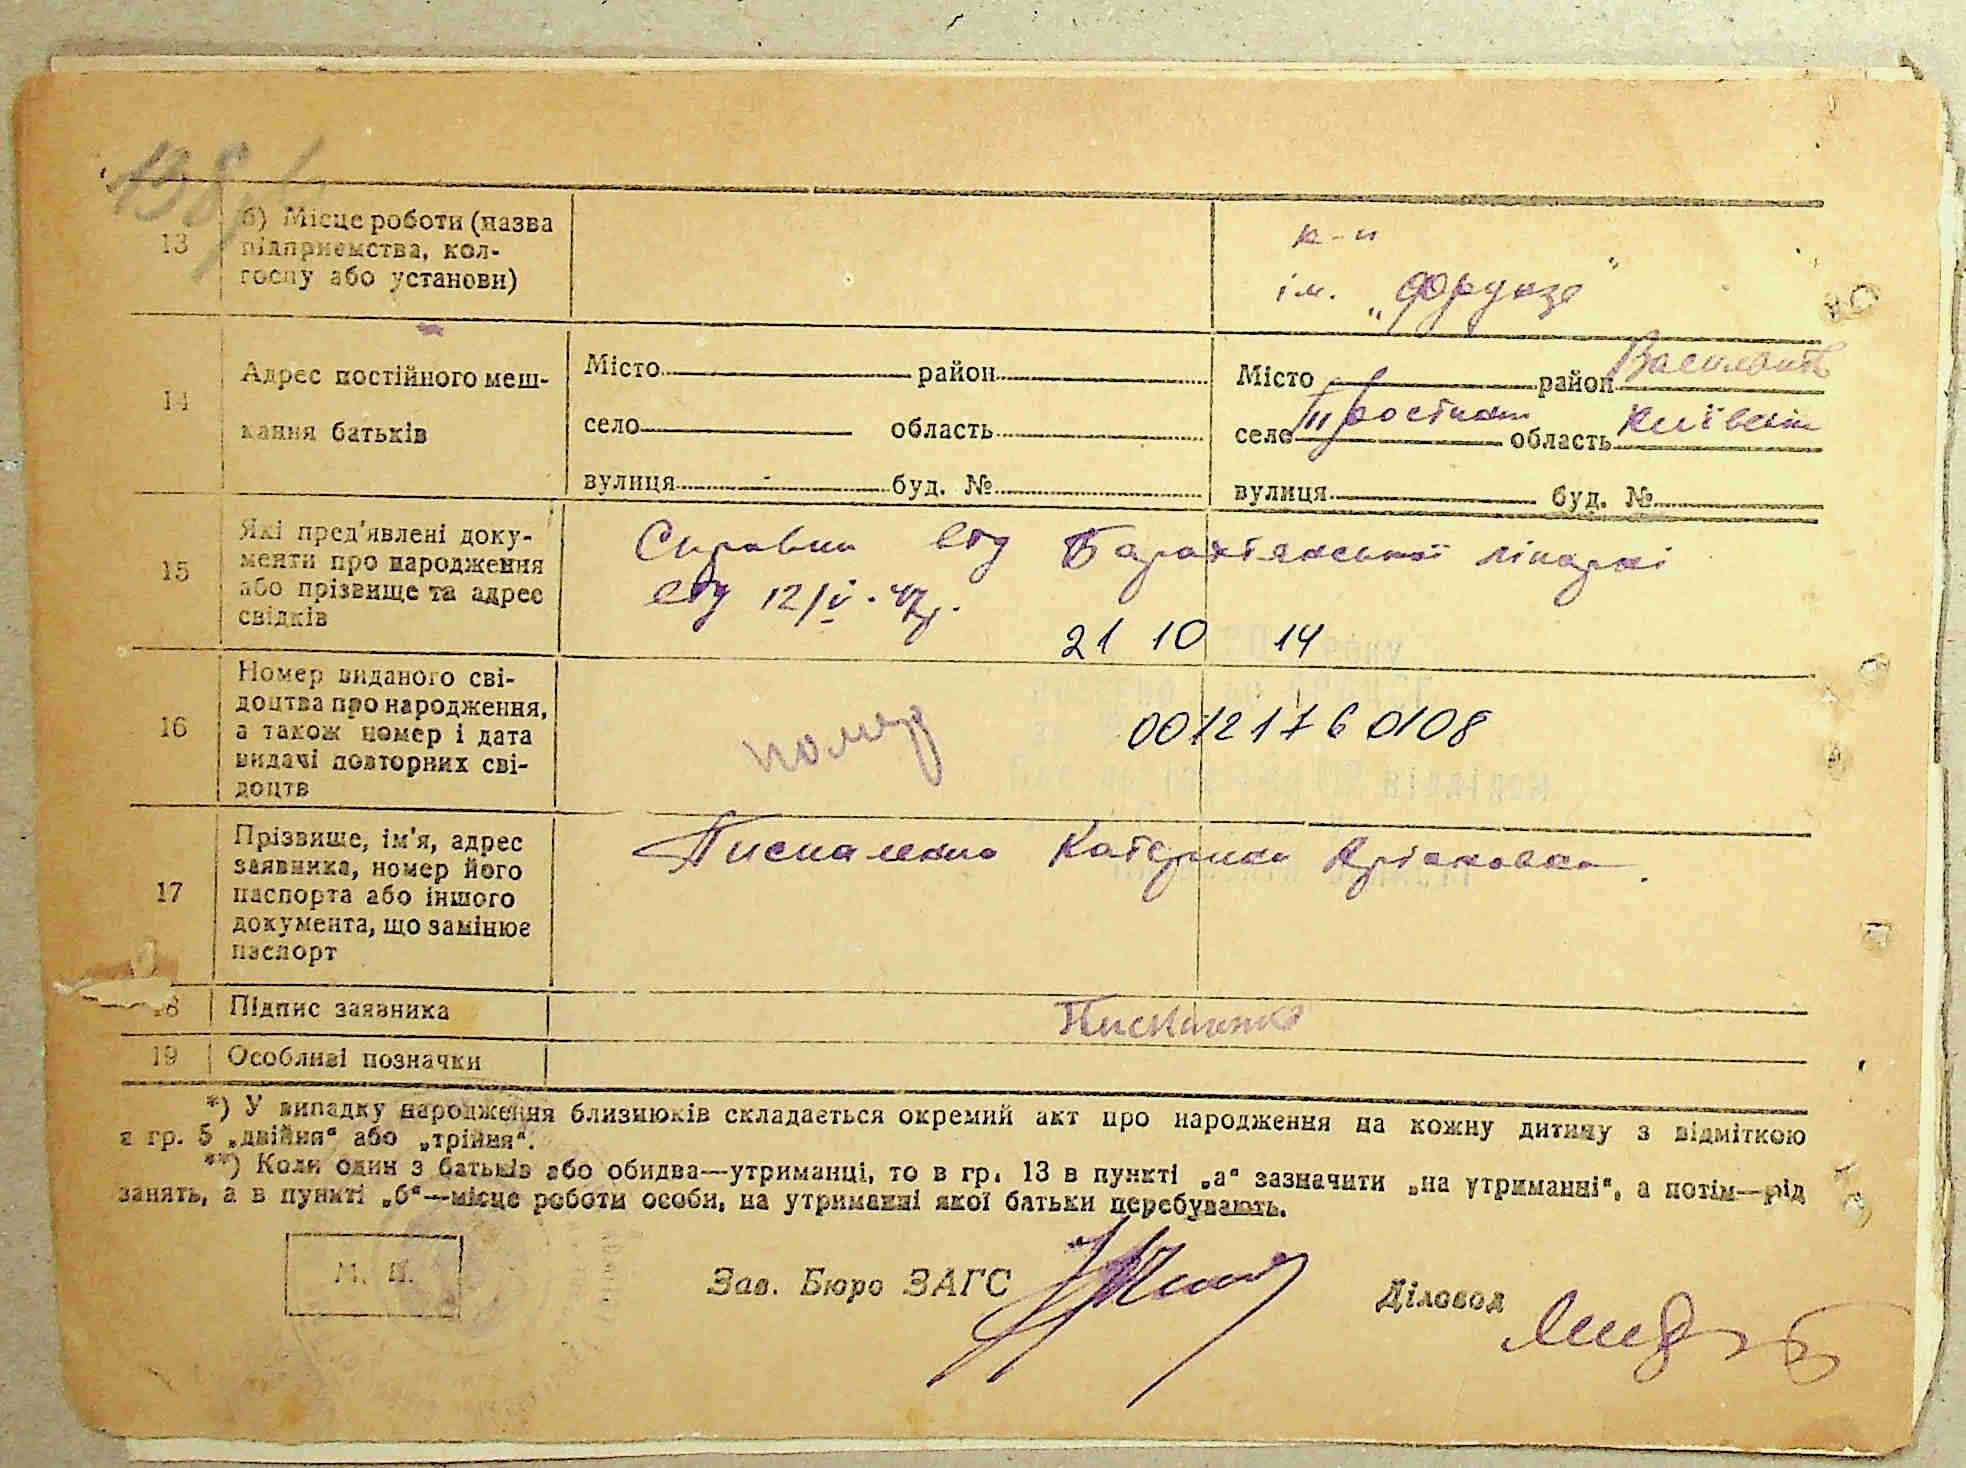 138
13
б) Місце роботи (назва
підприємства, кол-
госпу або установи)
к-п
ім. „Фрунзе"
14
Адрес постійного меш-
кання батьків
Місто район
село область
вулиця буд. №
Місто район Васильків
село область Київськ
вулиця буд. №
15
Які пред'явлені доку-
менти про народження
або прізвище та адрес
свідків
Справка від лікарні
від 12/V-47р.
21 10 14
16
Номер виданого сві-
доцтва про народження,
а також номер і дата
видачі повторних сві-
доцтв
помер
00121760108
17
Прізвище, ім'я, адрес
заявника, номер його
паспорта або іншого
документа, що замінює
паспорт
Катерина
18
Підпис заявника
19
Особливі позначки
*) У випадку народження близнюків складається окремий акт про народження на кожну дитину з відміткою
в гр. 5 „двійня“ або „трійня“.
**) Коли один з батьків або обидва—утриманці, то в гр. 13 в пункті „а“ зазначити „на утриманні“, а потім—рід
занять, а в пункті „б“—місце роботи особи, на утриманні якої батьки перебувають.
М. П.
Зав. Бюро ЗАГС
Діловод